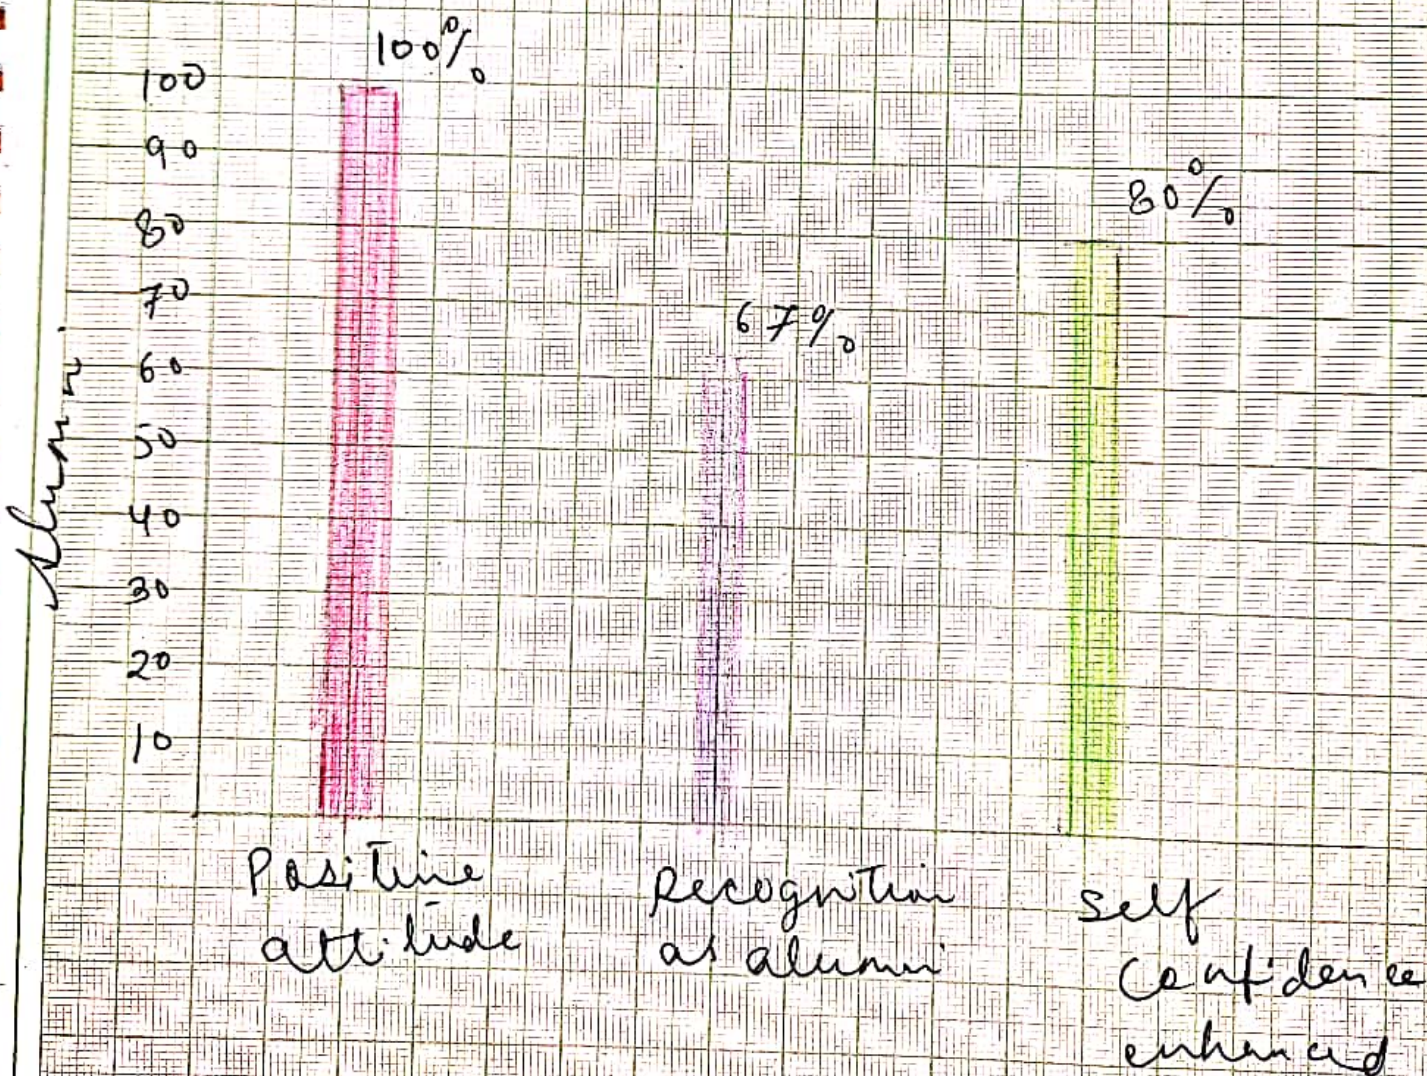 100%
100
90
80%
80
70
67%
60
50
40
30
20
10
Alumni
Positive
attitude
Recognition
as alumni
Self
Confidence
enhanced